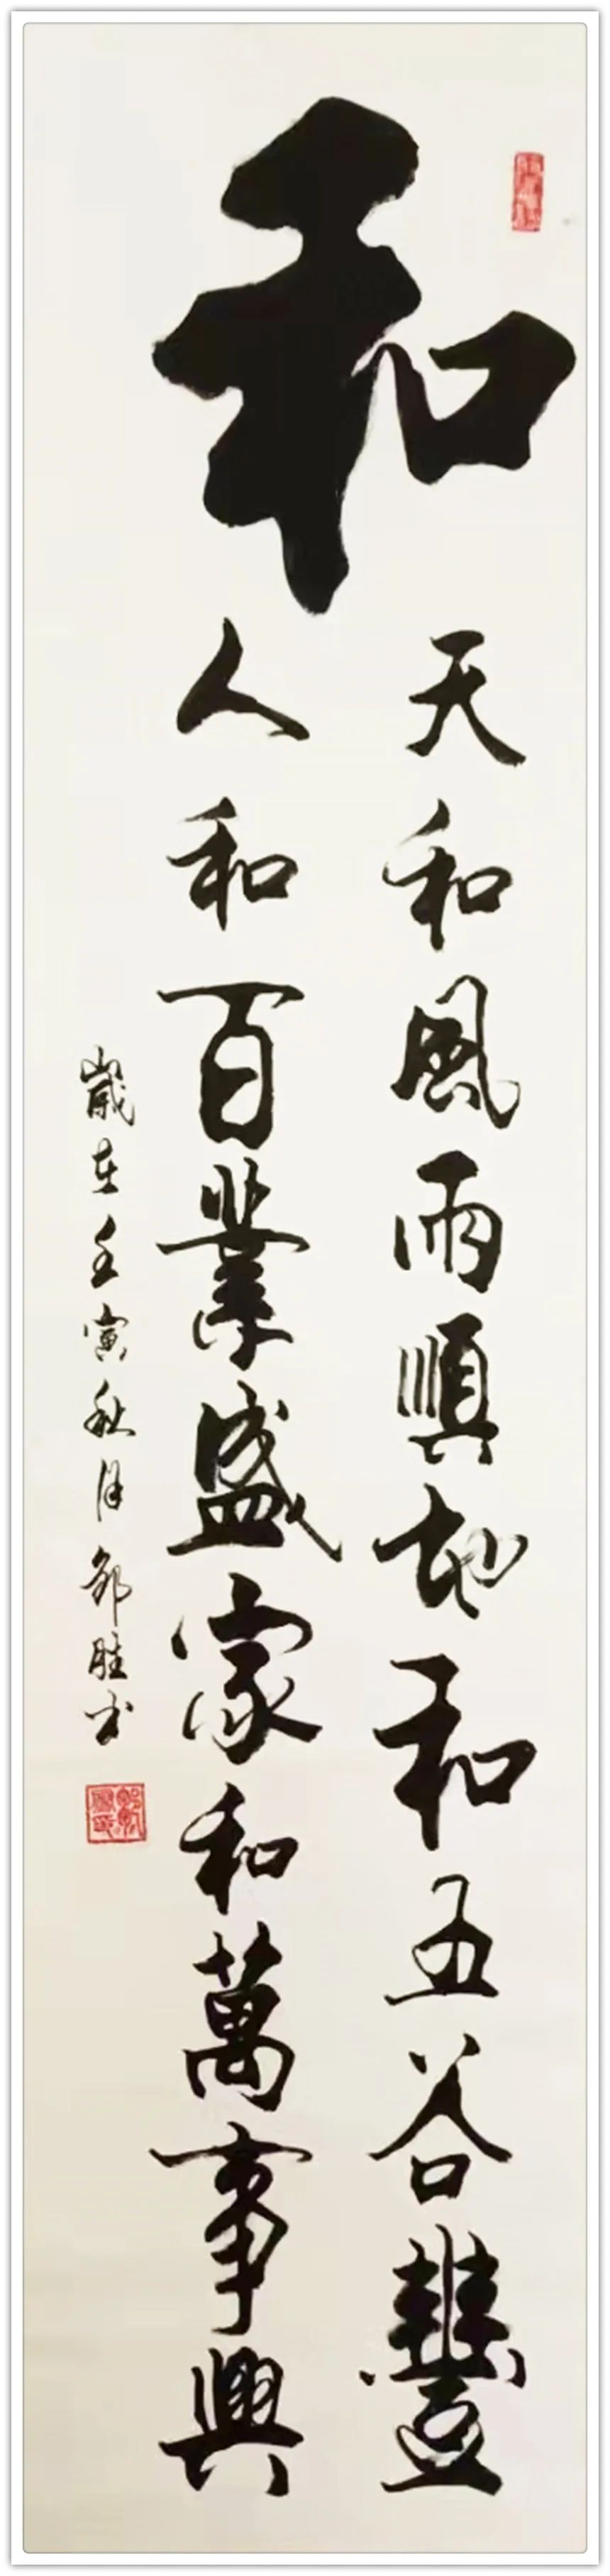 和
天和風雨順地和五谷豐
人和百業盛家和萬事興
歲在壬寅秋月邹胜书